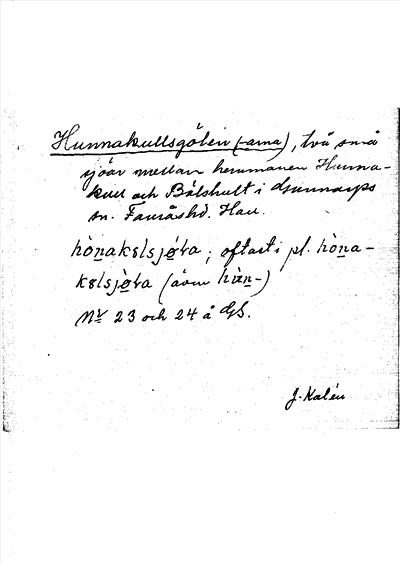 Hunnakullsgölen (-arna), två små
sjöar mellan hemmanen Hunna-
kull och Bälshult i Gunnarps
sn. Fauråshd. Hall.
hònakɛlsjøra; oftast i pl. hòna-
kɛlsjøra (även hùn-)
Nr 23 och 24 å GS.
J. Kalén